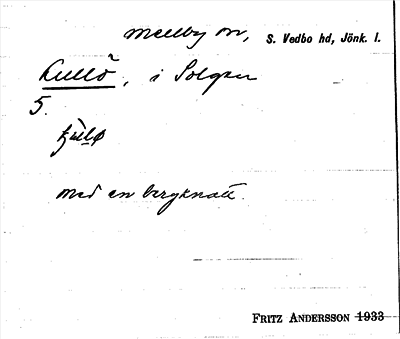 Mellby sn, S. Vedbo hd, Jönk. l.
Kullö, i Solgen
5.
med en bergknatt.
FRITZ ANDERSSON 1933